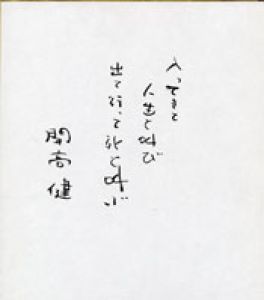 入ってきて
人生と叫び
出て行って死と叫ぶ
開高健